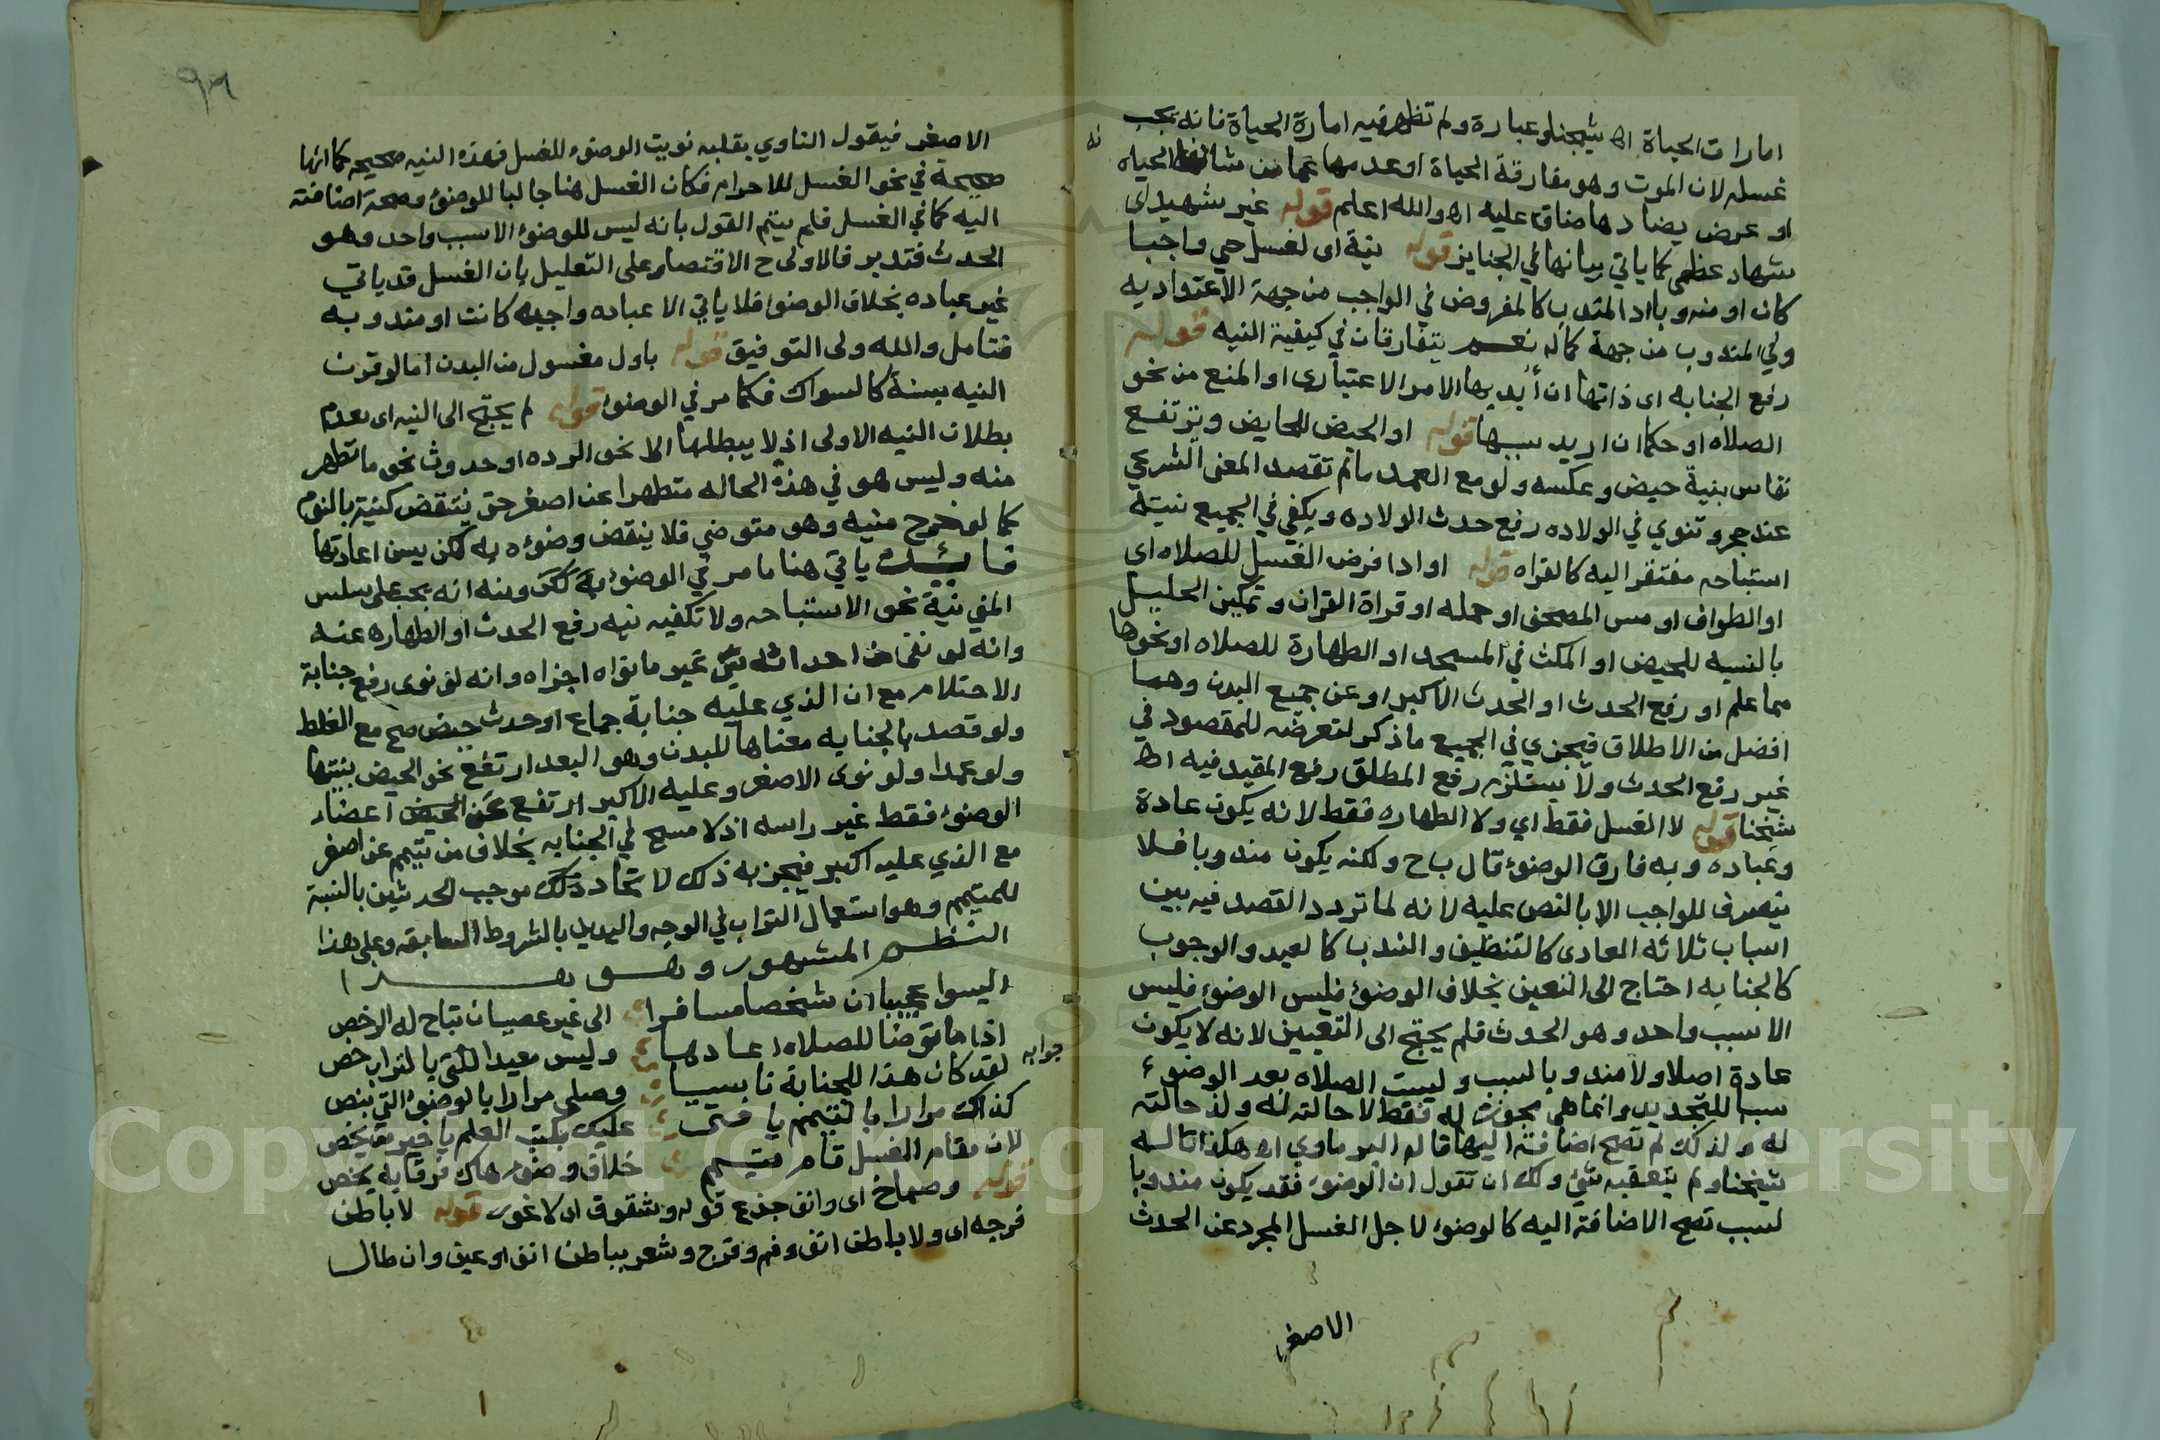 امارات الحياة اه شيخنا وعبارة ولم تظهر فيه امارة الحياة فانه يجب
غسله لان الموت وهو مفارقة الحياة او عدمها عما من شانها الحياه
او عرض يضادها صادق عليه اه والله اعلم قوله غير شهيد اى
شهاده عظمى كما ياتي بيانها في الجنايز قوله بنية اى لغسل حي واجبا
كان او مندوبا اد المندب كالمفروض في الواجب من جهة الاعتداد به
وفي المندوب من جهة كماله نعم يتفارقان في كيفية النيه قوله
رفع الجنابه اى ذاتها ان أريد بها الامر الاعتبارى او المنع من نحو
الصلاه او حكما ان اريد سببها قوله او الحيض للحايض ويرتفع
نفاس بنية حيض وعكسه ولو مع العمد ما لم تقصد المعنى الشرعي
عند حجر وتنوي في الولاده رفع حدث الولاده ويكفي في الجميع نية
استباحه مفتقر اليه كالقراه قوله او ادا فرض الغسل للصلاه اى
او الطواف او مس المصحف او حمله او قراة القران وتمكين الحليل
بالنسبه للحيض او المكث في المسجد او الطهارة للصلاه او نحوها
مما علم او رفع الحدث او الحدث الاكبر او عن جميع البدن وهما
افضل من الاطلاق فيجزي في الجميع ما ذكر لتعرضه للمقصود في
غير رفع الحدث ولاستلزم رفع المطلق رفع المقيد فيه اه
شيخنا قوله لا الغسل فقط اي ولا الطهاره فقط لانه يكون عادة
وعباده وبه فارق الوضوء قال ب ح ولكنه يكون مندوبا فلا
ينصرف للواجب الا بالنص عليه لانه لما تردد القصد فيه بين
اسباب ثلاثه العادى كالتنظيف والندب كالعيد والوجوب
كالجنابه احتاج الى التعين بخلاف الوضوء فليس الوضوء فليس
الا سبب واحد وهو الحدث فلم يحتج الى التعيين لانه لا يكون
عادة اصلا ولا مندوبا لسبب وليست الصلاه بعد الوضوء
سببا للتجديد وانما هي مجوزة له فقط لا حالته له ولذ حالته
له ولذلك لم تصح اضافته اليها قاله البرماوي اه هكذا قاله
شيخنا ولم يتعقبه شئ ولك ان تقول ان الوضوء فقد يكون مندوبا
لسبب تصح الاضافة اليه كالوضوء لاجل الغسل المجرد عن الحدث
الاصغر
٩٦
الاصغر فيقول الناوي بقلبه نويت الوضوء للغسل فهذه النيه صحيحه كما انها
صحيحة في نحو الغسل للاحرام فكان الغسل هنا جالبا للوضوء وصحة اضافته
اليه كما في الغسل فلم يتم القول بانه ليس للوضوء الا سبب واحد وهو
الحدث فتدبر فالاولى ح الاقتصار على التعليل بان الغسل قد ياتي
غير عباده بخلاف الوضوء فلا ياتي الا عباده واجبه كانت او مندوبه
فتامل والله ولى التوفيق قوله باول مغسول من البدن اما لو قرن
النيه بسنة كالسواك فكما مر في الوضوء قوله لم يحتج الى النيه اى لعدم
بطلان النيه الاولى اذ لا يبطلها الا نحو الرده او حدوث نحو ما تطهر
منه وليس هو في هذه الحاله متطهرا عن اصغر حتى ينتقض كنيته بالنوم
كما لو خرج منيه وهو متوضي فلا ينقض وضوءه به لكن يسن اعادتها
فائده ياتي هنا ما مر في الوضوء به لكن ومنه انه يجب على سلس
المني نية نحو الاستباحه ولا تكفيه نيه رفع الحدث او الطهاره عنه
وانه لو نفى من احداثه غير ما نواه اجزاه وانه لو نوى رفع جنابة
الاحتلام مع ان الذي عليه جنابة جماع او حدث حيض صح مع الغلط
ولو قصد بالجنابه معناها للبدن وهو البعد ارتفع نحو الحيض بنيتها
ولو عمدا ولو نوى الاصغر وعليه الاكبر ارتفع عن اعضاء
الوضوء فقط غير راسه اذ لا مسح في الجنابه بخلاف من تيمم عن اصغر
مع الذي عليه اكبر فيجزيه ذلك لاتحاد موجب الحدثين بالنسبة
للمتيمم وهو استعمال التراب في الوجه واليدين بالشروط السابقه وعلى هذا
النظم المشهور وهو هذا
اليسوا عجيبا ان شخصا مسافرا الى غير عصيان تباح له الرخص
اذا ما توضا للصلاه اعادها وليس معيدا للتي بالتراب خص
جوابه
لقد كان هذا للجنابة ناسيا وصلى مرارا بالوضوء التي بنص
كذاك مرارا بالتيمم يا فتى عليك بكتب العلم يا خير من يخص
لان مقام الغسل قام متيمم خلاف وضوء هاك فرقا به يخص
قوله وصماخ اى وانف جذع قوله وشقوق اى لا غور قوله لا باطن
فرجه اى ولا باطن انف وفم وفرج وشعر بباطن انف او عين وان طال